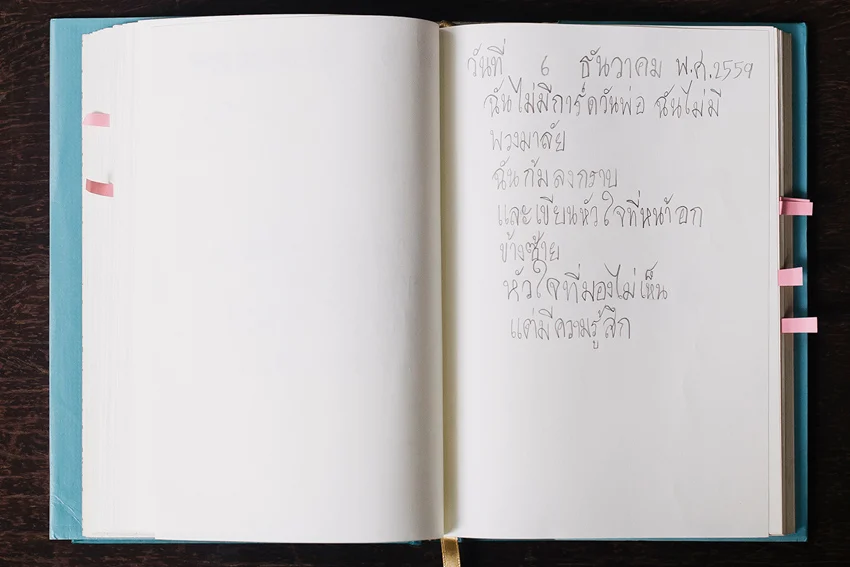 วันที่ 6 ธันวาคม พ.ศ.2559
ฉันไม่มีการ์ดวันพ่อ ฉันไม่มี
พวงมาลัย
ฉันก้มลงกราบ
และเขียนหัวใจที่หน้าอก
ข้างซ้าย
หัวใจที่มองไม่เห็น
แต่มีความรู้สึก